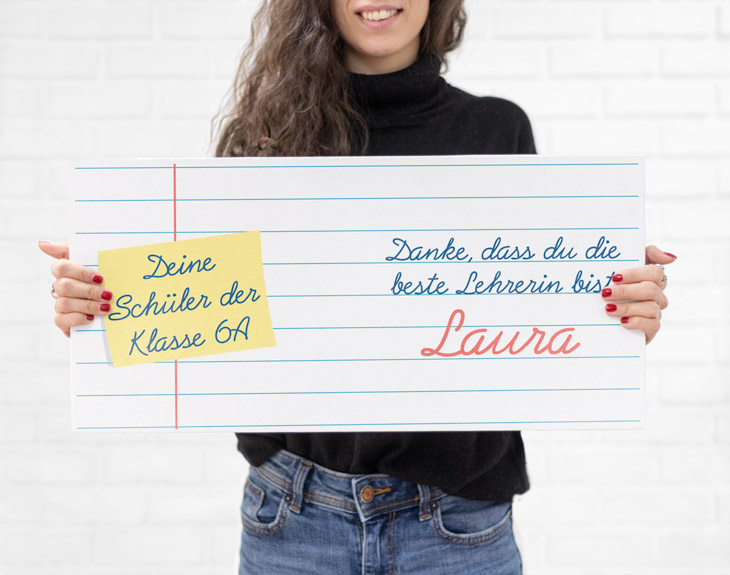 Deine
Schüler der
Klasse 6A
Danke, dass du die
beste Lehrerin bist
Laura